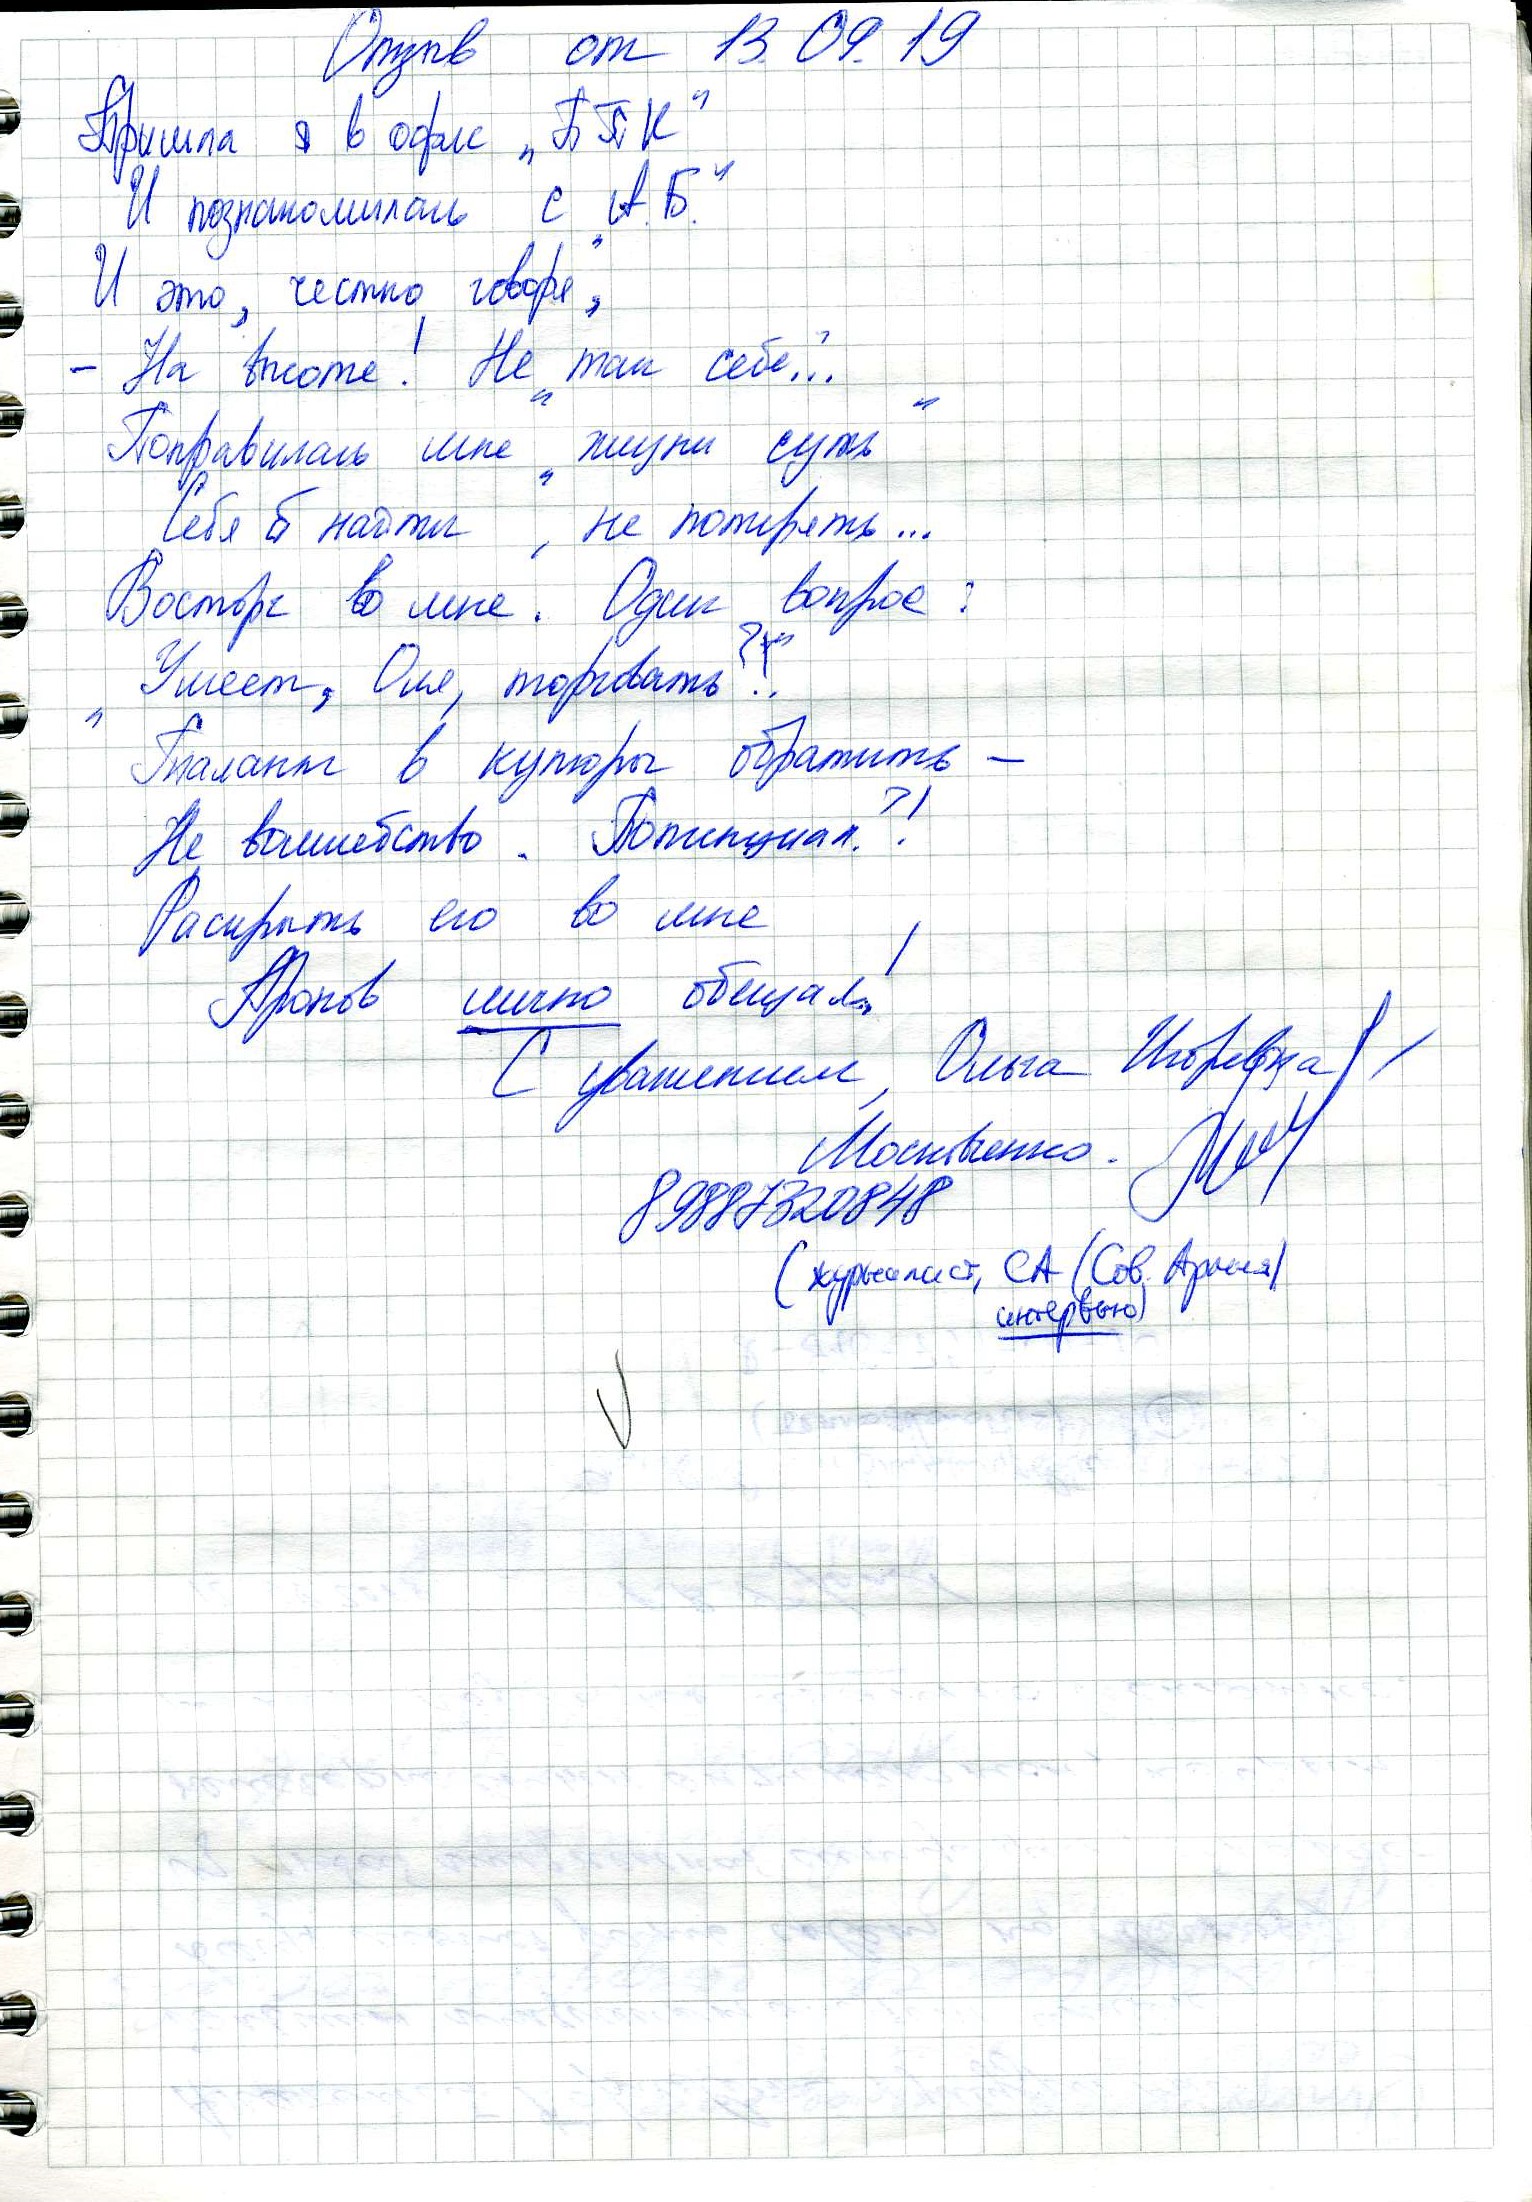 Отзыв от 13.09.19
Пришла я в офис „БПК"
И познакомилась с „А.Б."
И это, честно говоря,
- На высоте! Не „так себе"...
Понравилась мне „жизни суть"
Себя б найти, не потерять...
Восторг во мне. Один вопрос:
„Умеет, Оля, торговать?!"
Талант в купюры обратить –
Не волшебство. Потенциал?!
Раскрыть его во мне
Аронов лично обещал!
С уважением, Ольга Игоревна
Московченко.
89887320848
(журналист, СА (Сов. Адыгея)
интервью)